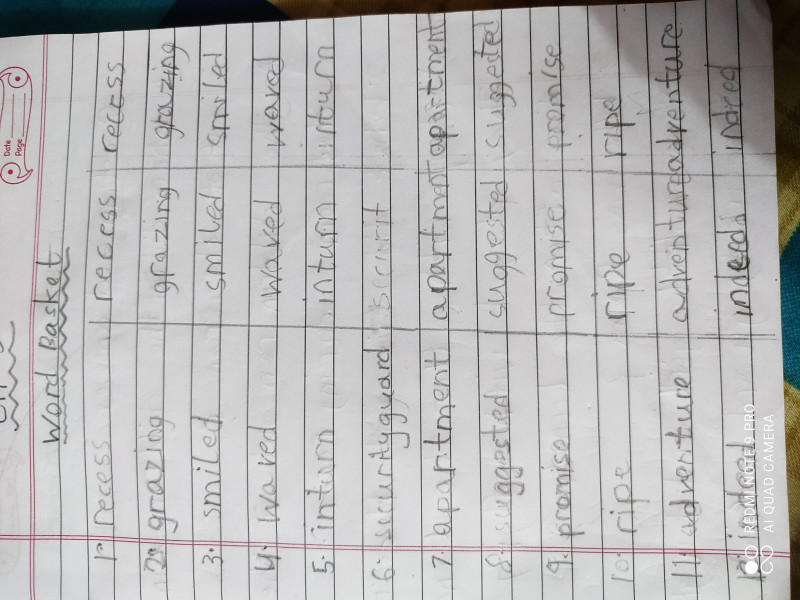 Date
Page
Word Basket
1. recess recess recess
2. grazing grazing grazing
3. smiled smiled smiled
4. waved waved waved
5. inturn inturn inturn
6. securityguard securit
7. apartment apartment apartment
8. suggested suggested suggested
9. promise promise promise
10. ripe ripe ripe
11. adventure adventure adventure
12. indeed indeed indeed
REDMI NOTE 9 PRO
AI QUAD CAMERA